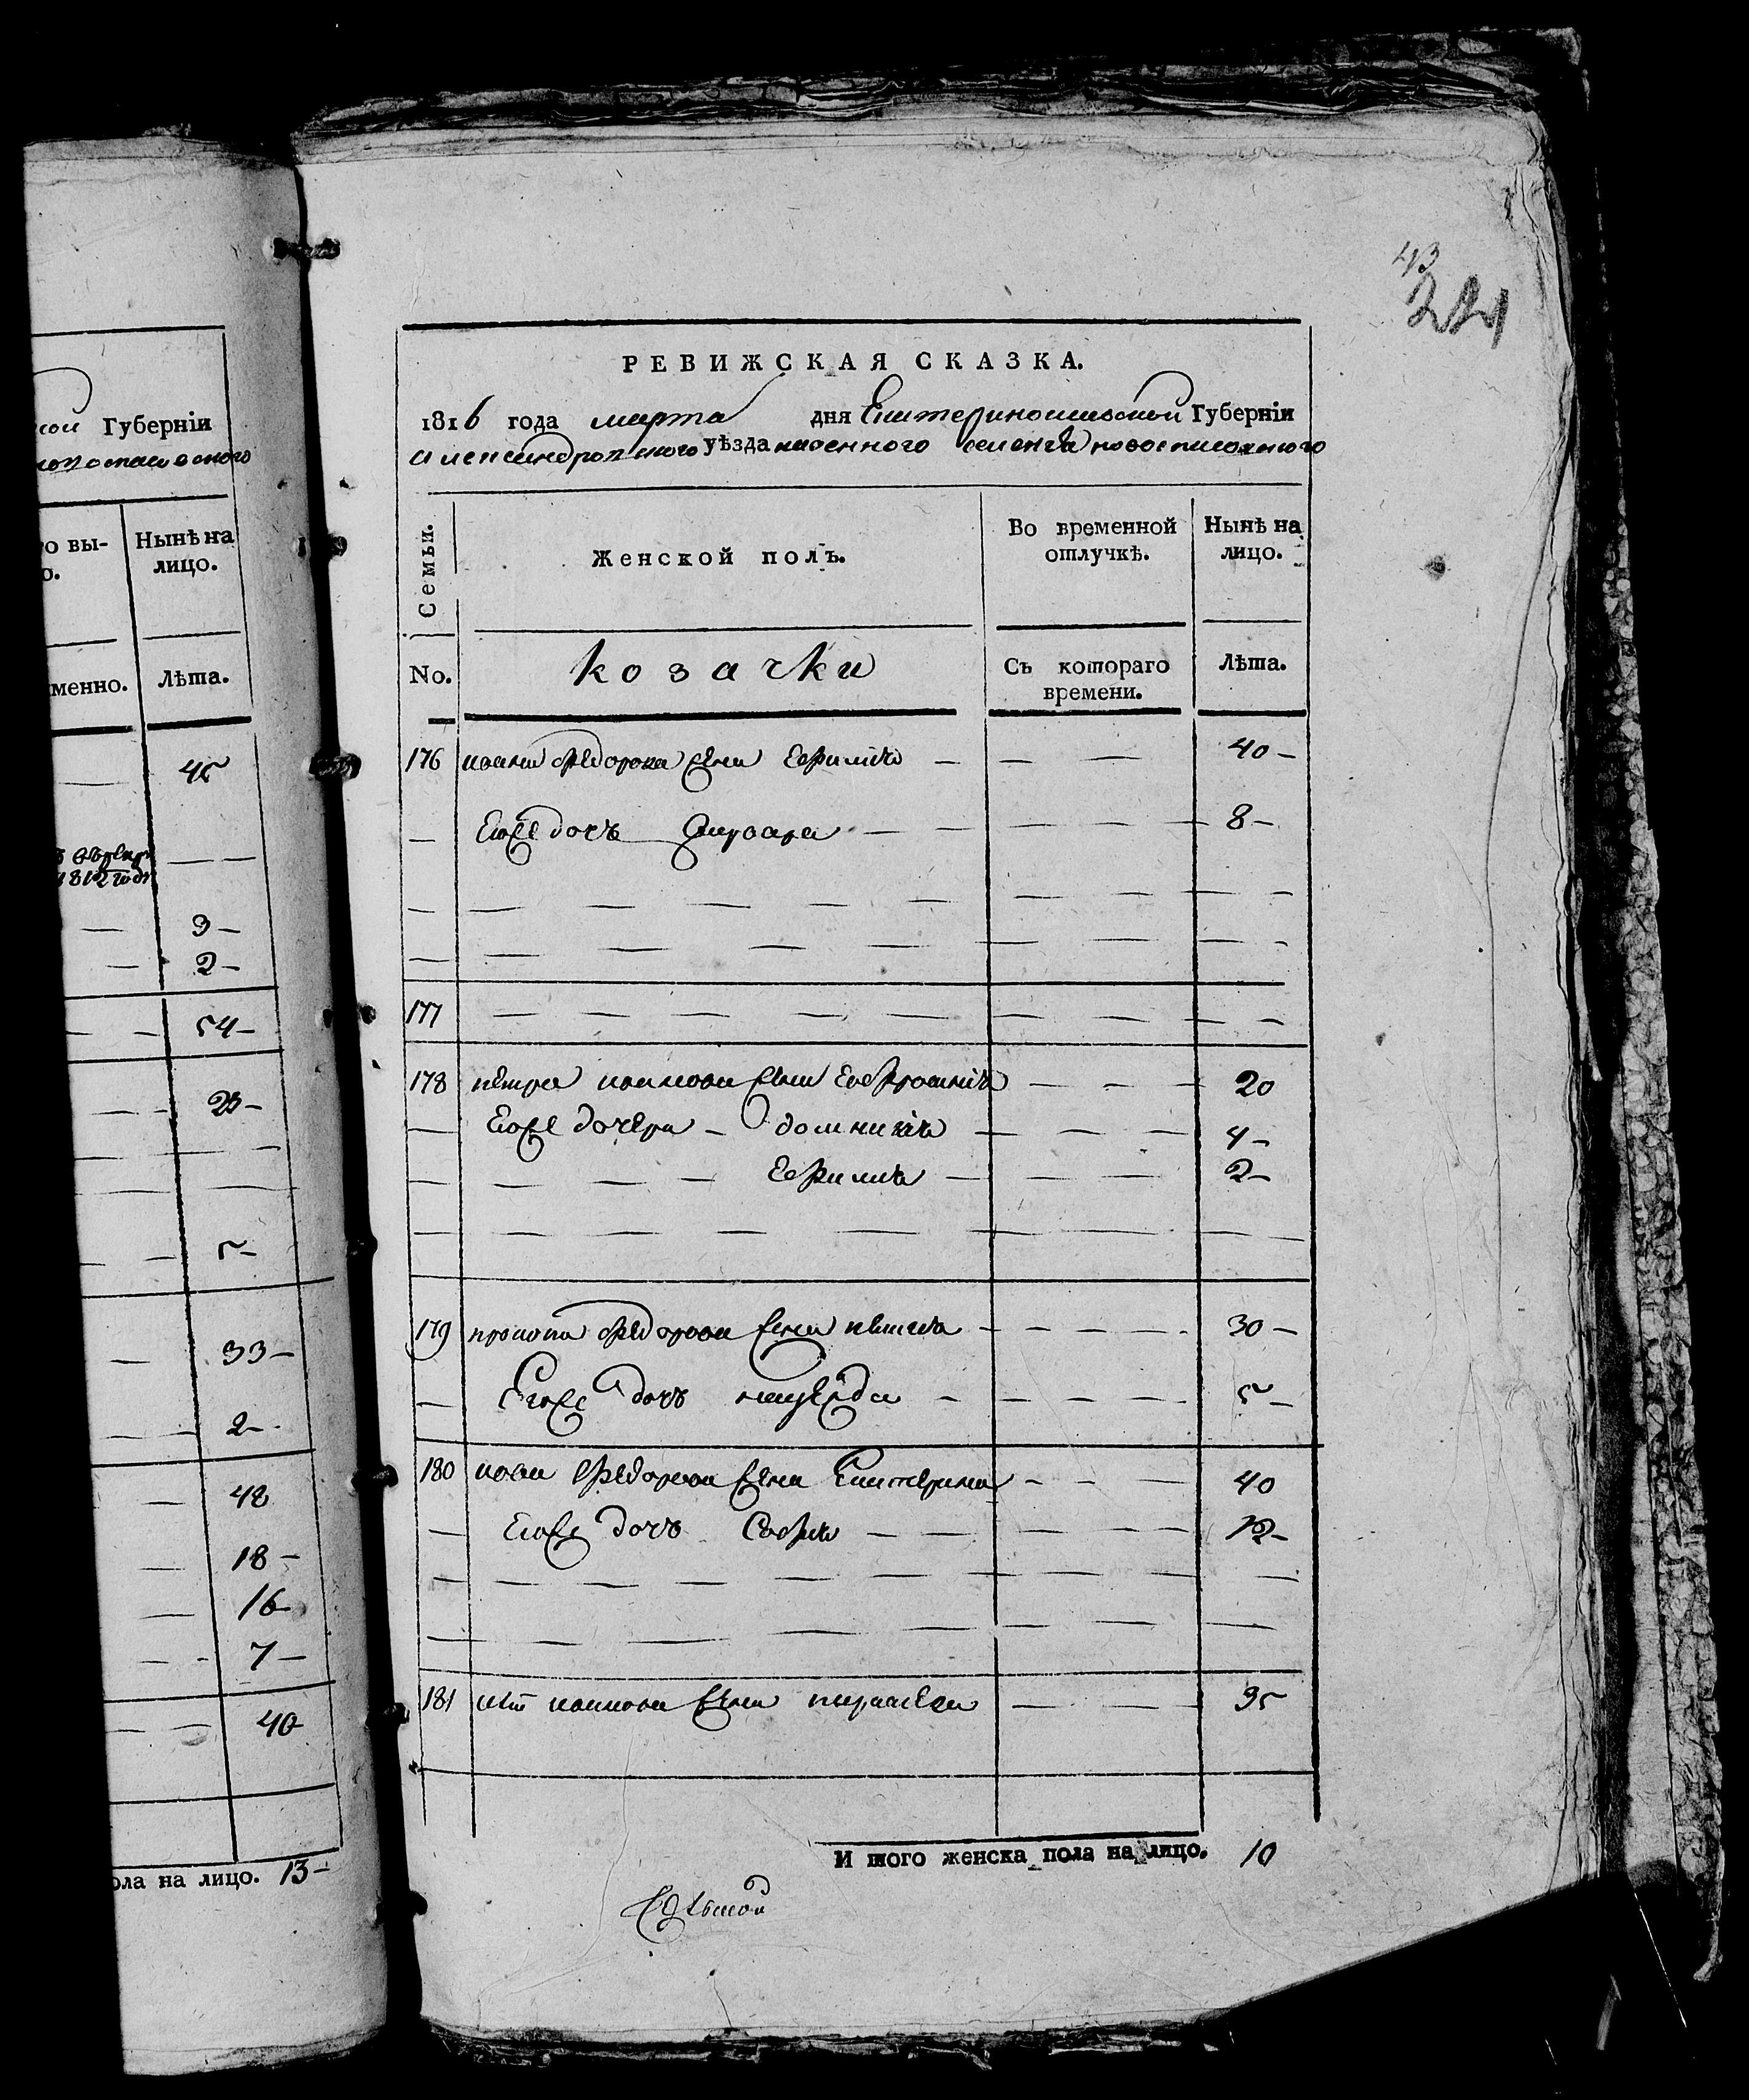 43
РЕВИЖСКАЯ СКАЗКА.
1816 года марта дня Екатеринославской Губерніи
александровского уѣзда казенного селенія новоспасовского
Семьи. Женской полъ. Во временной отлучкѣ. Нынѣ на лицо.
No. козачки Съ котораго времени. Лѣта.
176 ивана федорова жена Ефимия — — — 40 —
— Его же дочь варвара — — — — — 8 —
177
178 петра иванова жена Евфросиния — — — 20
— Его же дочери — домникия — — — 4 —
Ефимия — — — 2 —
179 прокопа федорова жена — — — — 30 —
— Его же дочь — — — — 5 —
180 федорова жена Екатерина — — — 40
— Его же дочь София — — — — — 12 —
181 иванова жена параскева — — — 35
Итого женска пола на лицо. 10
Губерніи
о вы-
о.
Нынѣ на лицо.
менно. Лѣта.
45
1812 года
9 —
2 —
54 —
5 —
33 —
2 —
48
18 —
16
7 —
40
ола на лицо. 13 —